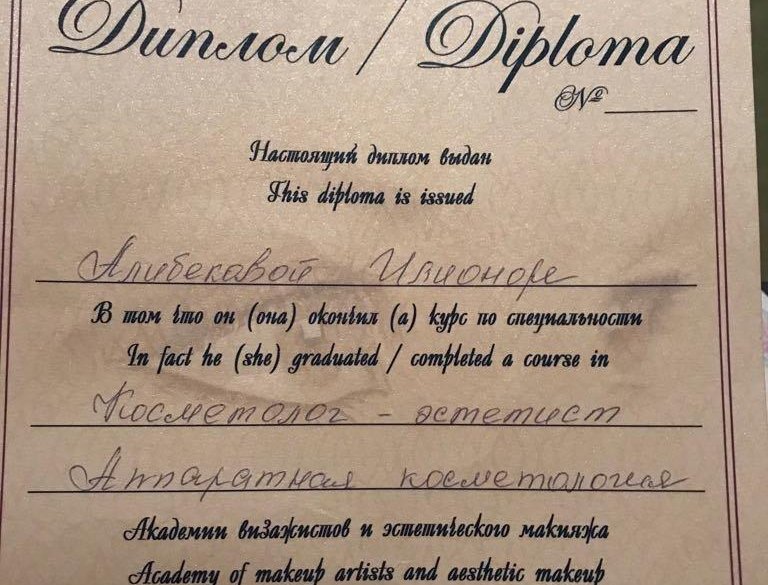 Диплом / Diploma
№
Настоящий диплом выдан
This diploma is issued
Алибековой Илионоре
В том что он (она) окончил (а) курс по специальности
In fact he (she) graduated / completed a course in
Косметолог - эстетист
Аппаратная косметология
Академии визажистов и эстетического макияжа
Academy of makeup artists and aesthetic makeup